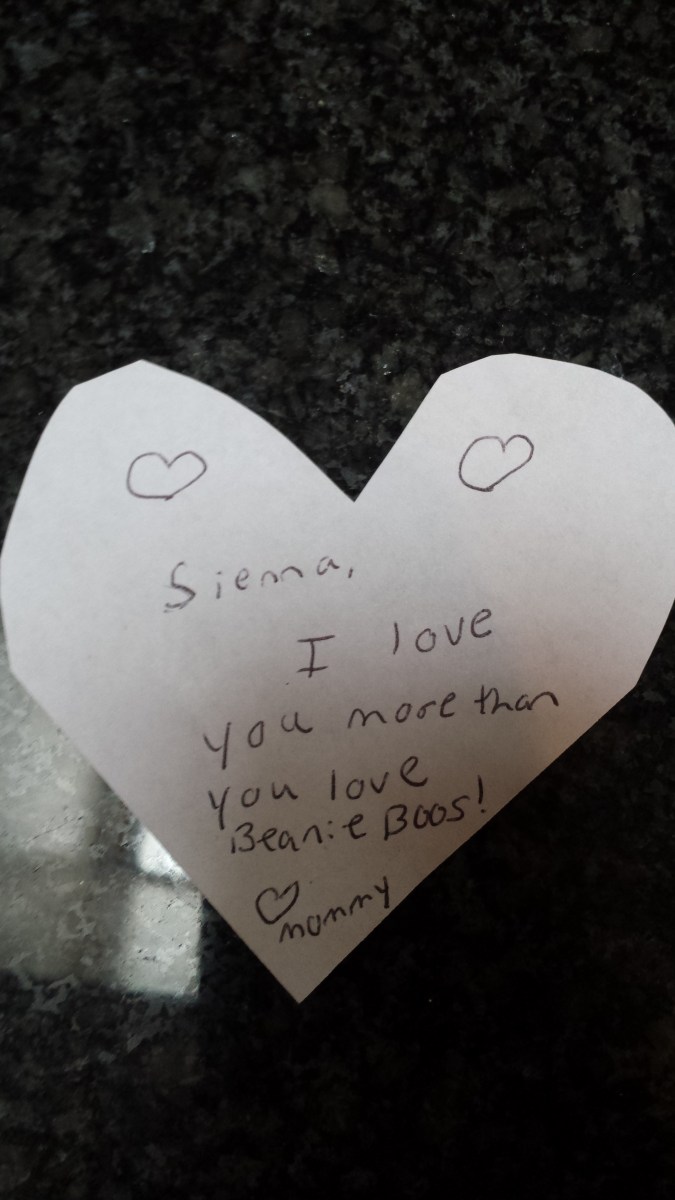 Sienna,
I love
you more than
you love
Beanie Boos!
♡ mommy